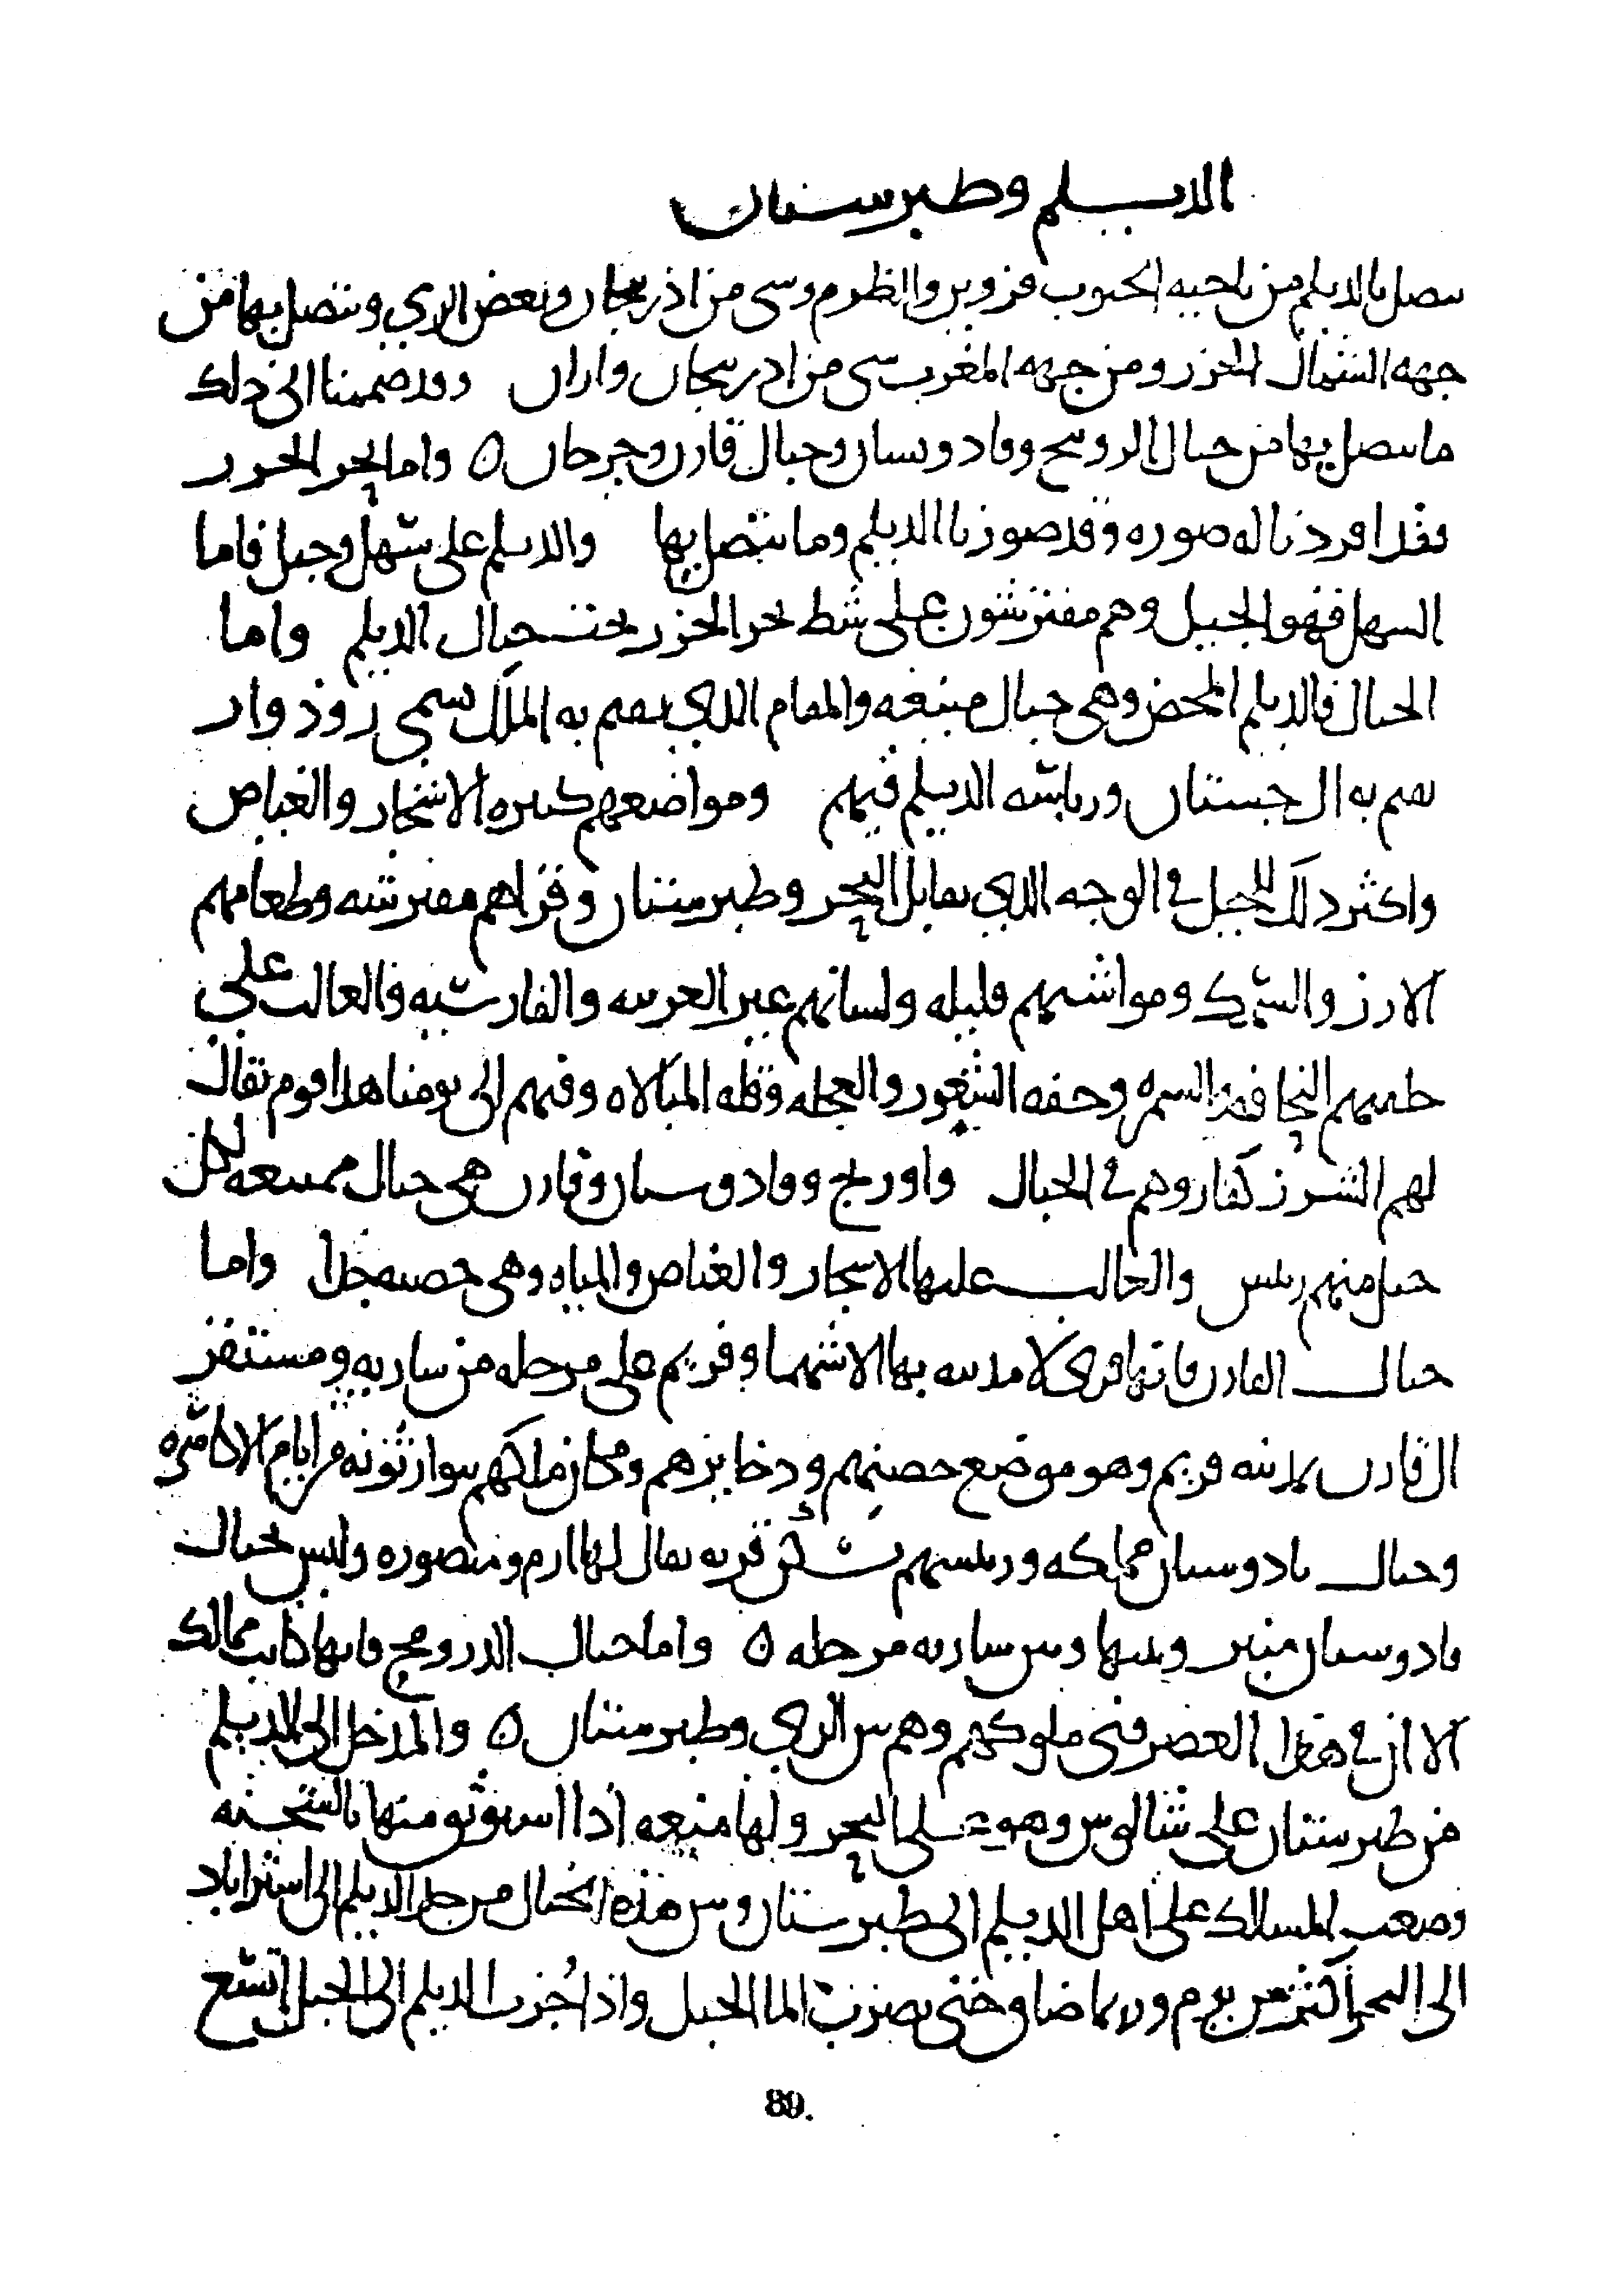 الديــلم وطبرستان
يتصل بالديلم من ناحيه الجنوب قزوين والطرم وشي من اذربيجان وبعض الري ويتصل بها من
جهه الشمال الخزر ومن جهه المغرب شي من اذربيجان واران وقد ضممنا الى ذلك
ما يتصل بها من جبال الروينج وفادوسبان وجبال قارن وجرجان ٥ واما بحر الخزر
فقد افردنا له صوره وقد صورنا الديلم وما يتصل بها والديلم على سهل وجبل فاما
السهل فهو الجبيل وهم مفترشون على شط بحر الخزر تحت جبال الديلم واما
الجبال فالديلم المحض وهي جبال منيعه والمقام الذي يقيم به الملك يسمى روذوار
يقيم به ال جستان ورياسه الديلم فيهم ومواضعهم كثيره الاشجار والغياض
واكثر ذلك للجيل في الوجه الذي يقابل البحر وطبرستان وقراهم مفترشه وطعامهم
الارز والسمك ومواشيهم قليله ولسانهم غير العربيه والفارسيه والغالب على
خلقهم النحافه السمره وخفه الشعور والعجله وقله المبالاه وفيهم الى يومنا هذا قوم يقال
لهم الشرز كفار وهم في الجبال واورنج وفادوسبان وقارن هي جبال ممتنعه لكل
جبل منهم ريس والغالب عليها الاشجار والغياض والمياه وهي خصبه جدا واما
جبال القارن فانها قرى لا مدينه بها الا شهمار وفريم على مرحله من ساريه ومستقر
ال قارن بمدينه فريم وهو موضع حصنهم وذخايرهم ومكان ملكهم يتوارثونه من ايام الاكاسره
وجبال بادوسبان مملكه وريسهم يسكن قريه يقال لها ارم ومنصوره وليس بجبال
فادوسبان منبر وبينها وبين ساريه مرحله ٥ واما جبال الروبنج فانها كانت ممالك
الا ان في هذا العصر فني ملوكهم وهم بين الري وطبرستان ٥ والمدخل الى الديلم
من طبرستان على شالوس وهو على البحر ولها منعه اذا استوثق منها بالشحنه
وصعب المسالك على اهل الديلم الى طبرستان وبين هذه الجبال من حد الديلم الى استراباد
الى البحر اكثر من يوم وربما ضاق حتى يضرب الما الجبل واذا جزت الديلم الى الجبل اتسع
89.